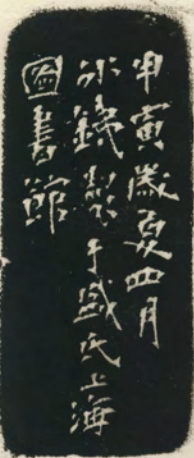 甲寅歲夏四月
冰鐵製于盛氏上海
圖書館